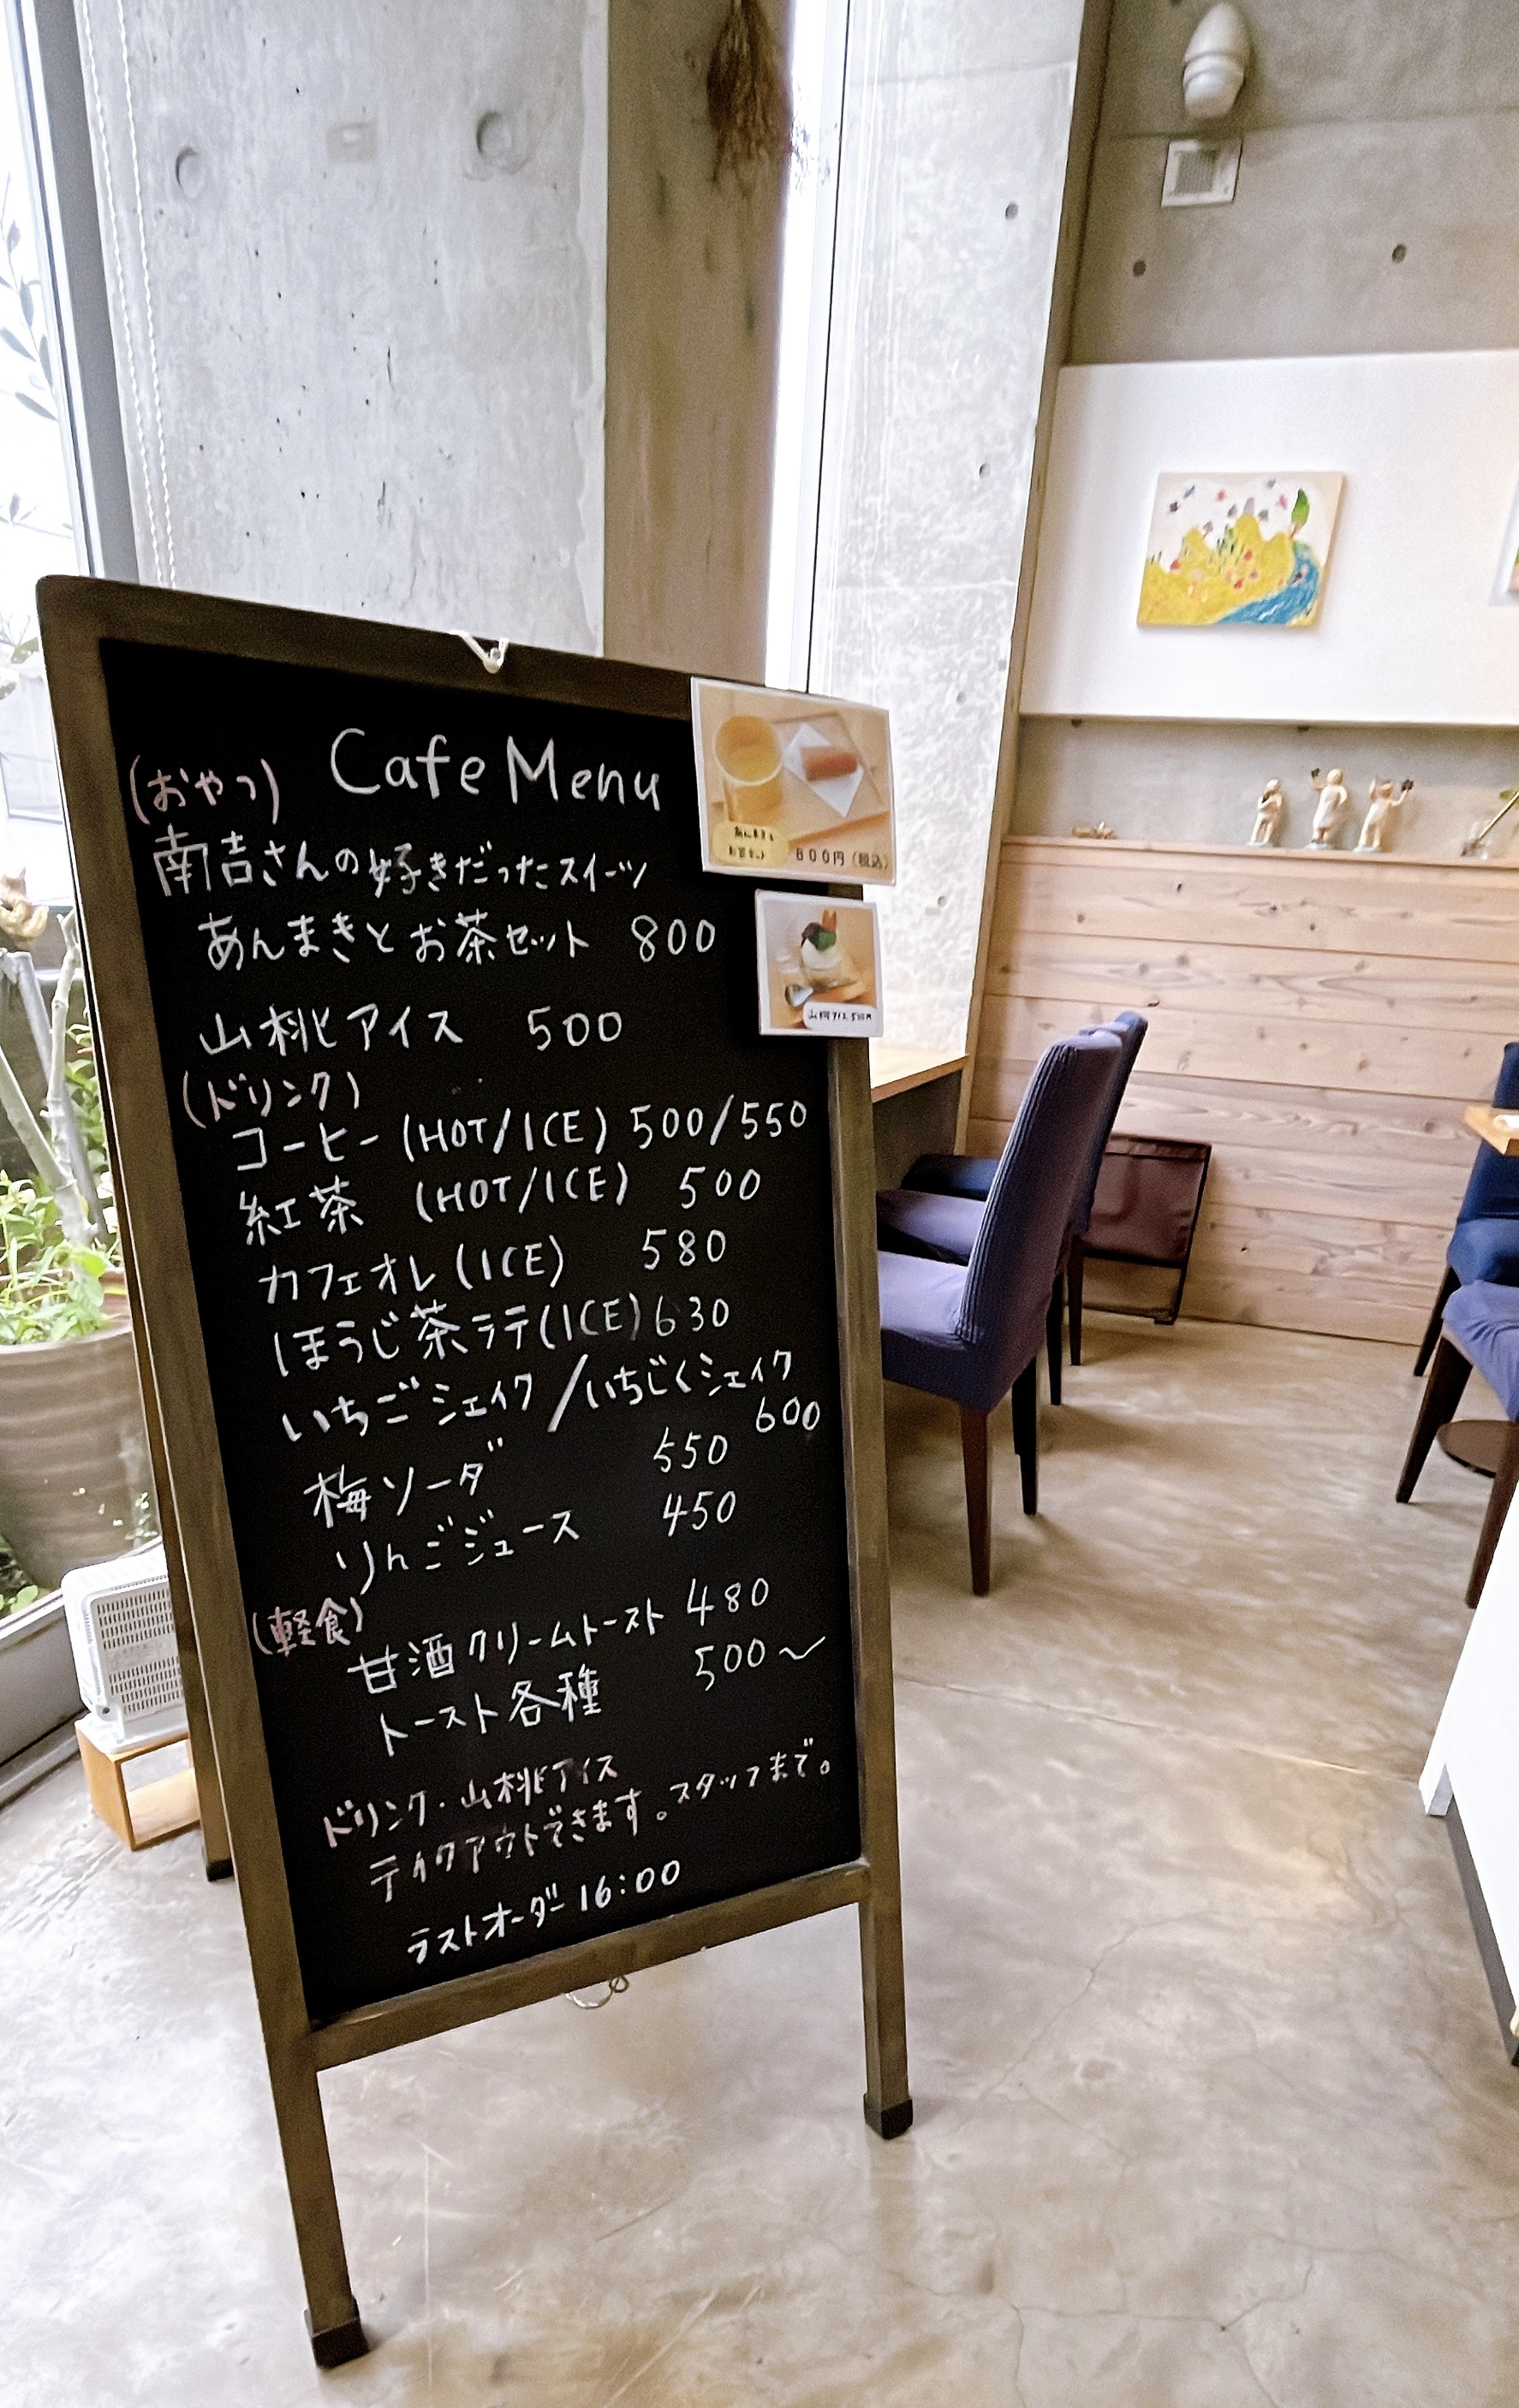 Cafe Menu
(おやつ)
南吉さんの好きだったスイーツ
あんまきとお茶セット 800
山桃アイス 500
(ドリンク)
コーヒー (HOT/ICE) 500/550
紅茶 (HOT/ICE) 500
カフェオレ(ICE) 580
ほうじ茶ラテ(ICE) 630
いちごシェイク/いちじくシェイク
600
梅ソーダ 550
りんごジュース 450
(軽食)
甘酒クリームトースト 480
トースト各種 500〜
ドリンク・山桃アイス
テイクアウトできます。スタッフまで。
ラストオーダー 16:00
あんまきと
お茶セット
800円(税込)
山桃アイス500円